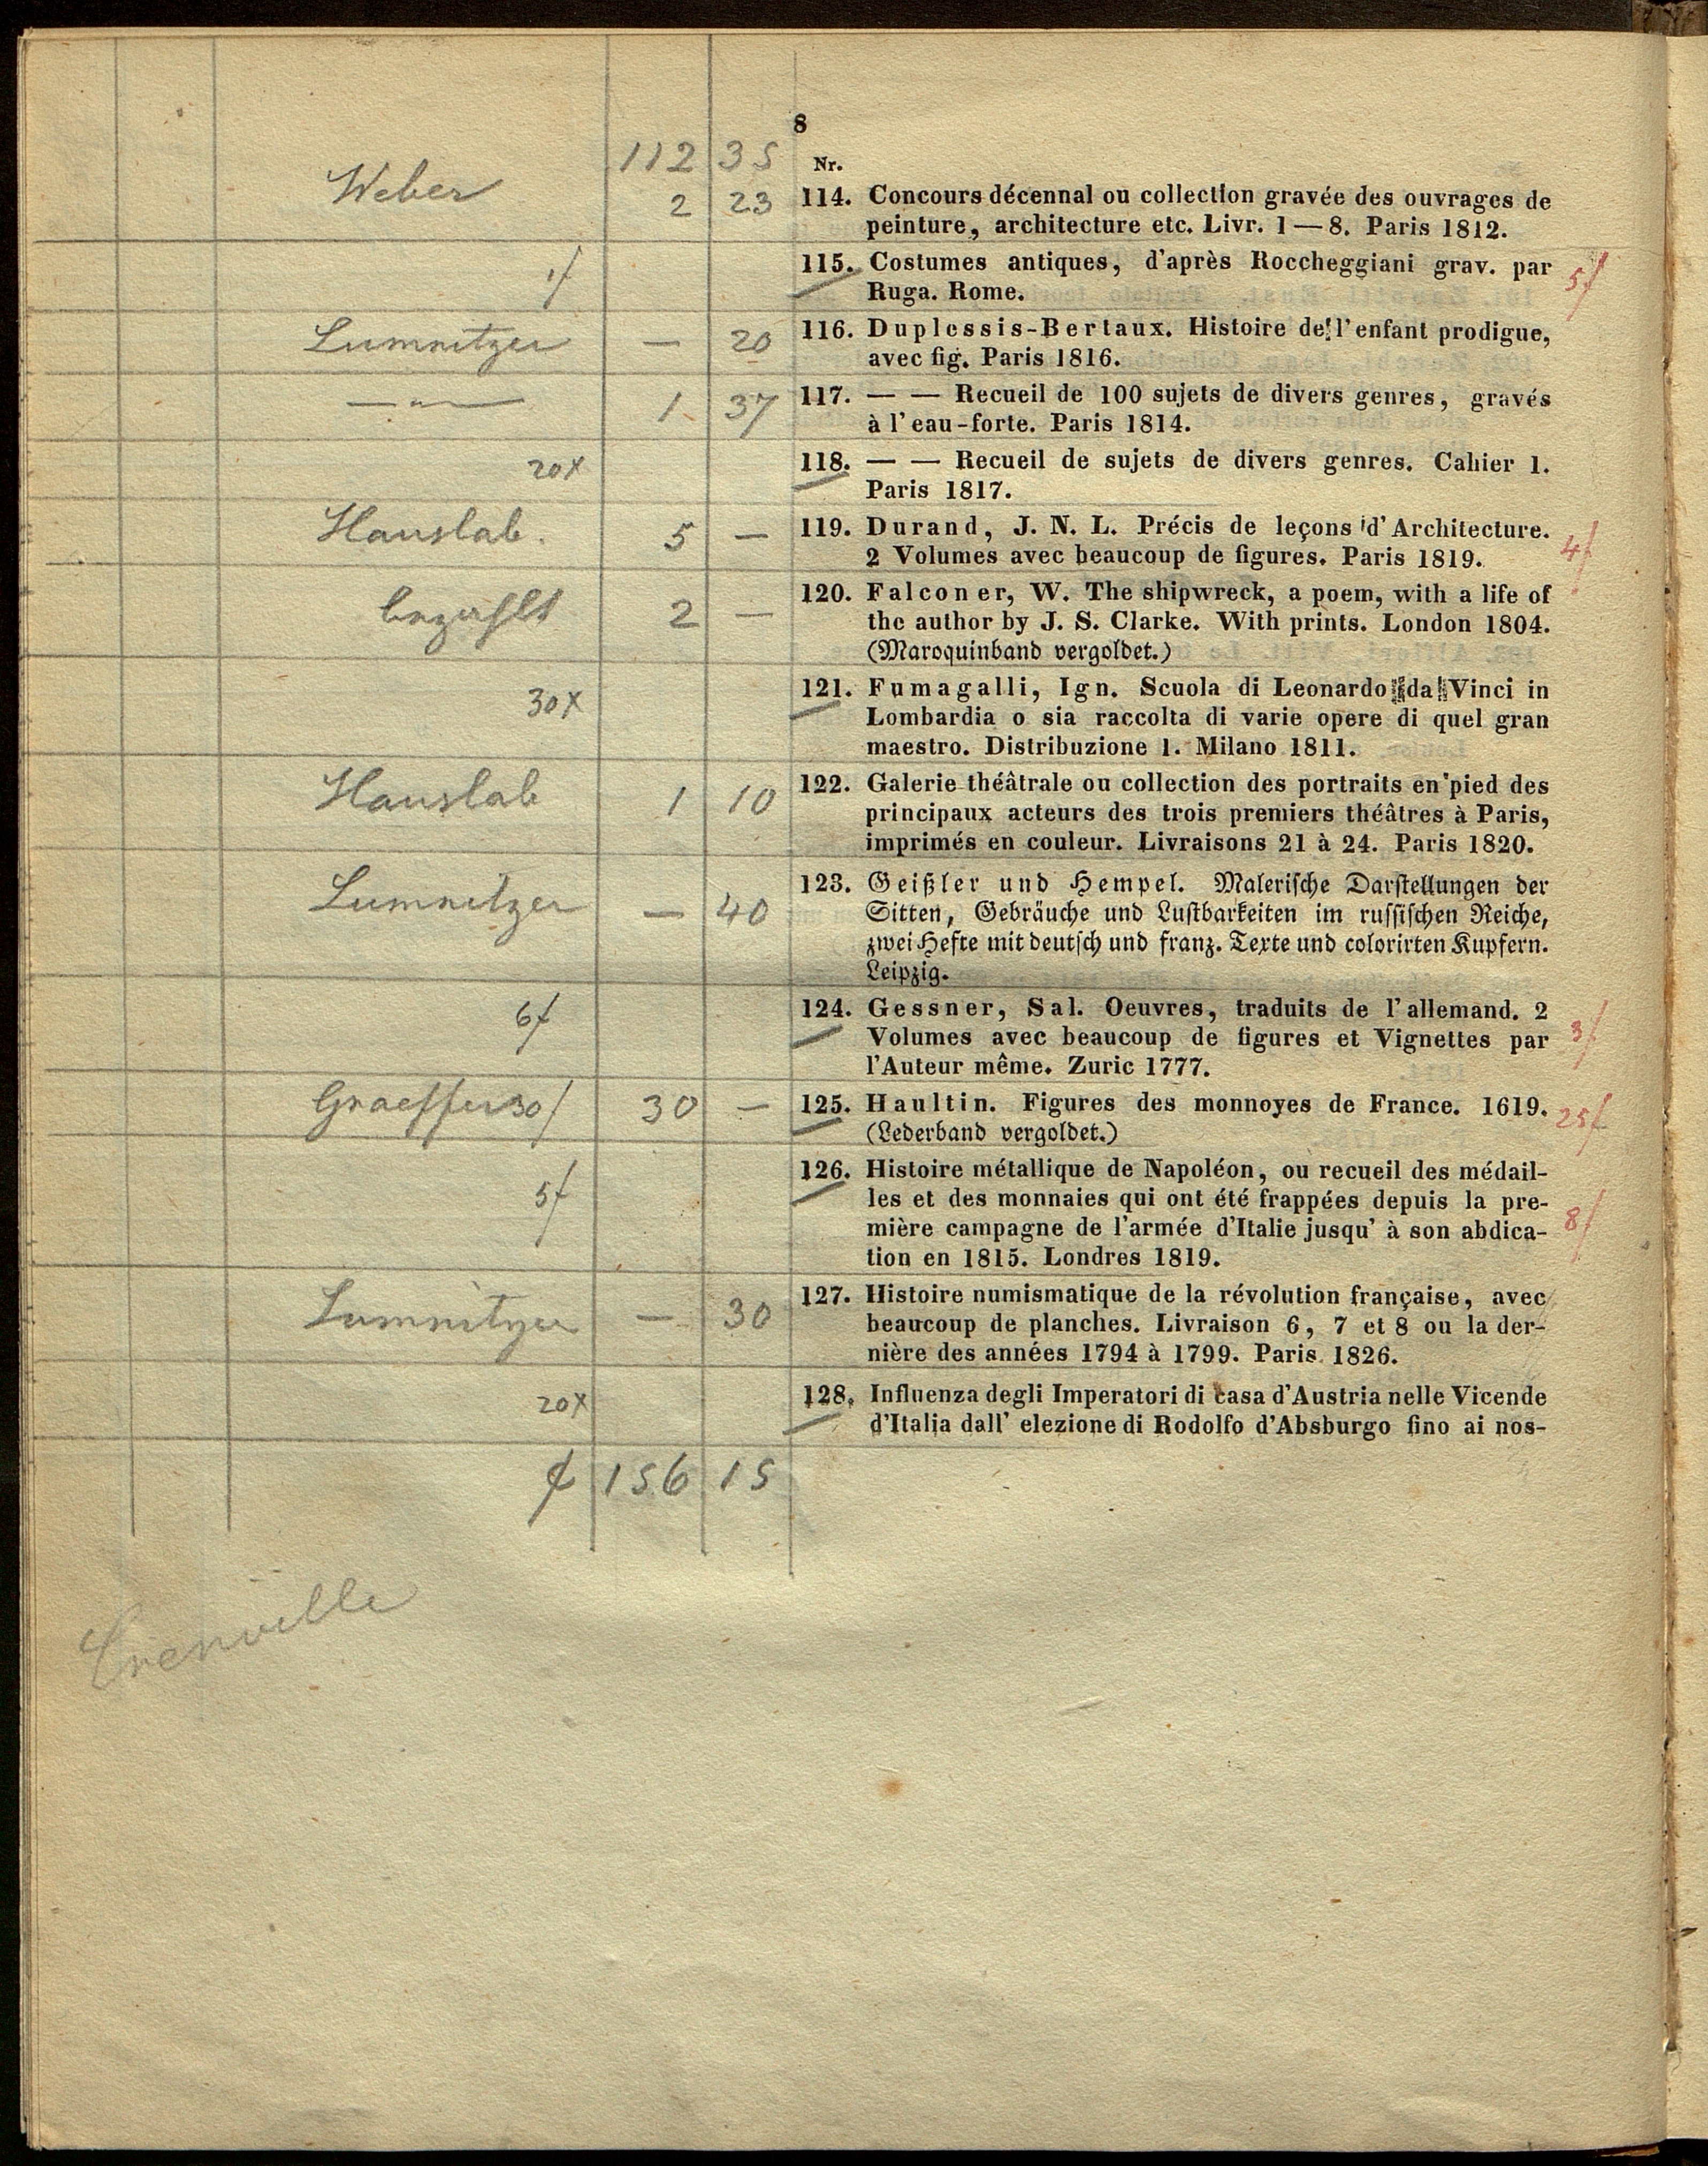 8
112 35 Nr.
Weber 2 23 114. Concours décennal ou collection gravée des ouvrages de
peinture, architecture etc. Livr. 1—8. Paris 1812.
1f 115. Costumes antiques, d'après Roccheggiani grav. par 5f
Ruga. Rome.
Lumnitzer — 20 116. Duplessis-Bertaux. Histoire de l'enfant prodigue,
avec fig. Paris 1816.
— „ — 1 37 117. — — Recueil de 100 sujets de divers genres, gravés
à l'eau-forte. Paris 1814.
20x 118. — — Recueil de sujets de divers genres. Cahier 1.
Paris 1817.
Hauslab. 5 — 119. Durand, J. N. L. Précis de leçons d'Architecture.
2 Volumes avec beaucoup de figures. Paris 1819. 4f
bezahlt 2 — 120. Falconer, W. The shipwreck, a poem, with a life of
the author by J. S. Clarke. With prints. London 1804.
(Maroquinband vergoldet.)
30x 121. Fumagalli, Ign. Scuola di Leonardo da Vinci in
Lombardia o sia raccolta di varie opere di quel gran
maestro. Distribuzione 1. Milano 1811.
Hauslab 1 10 122. Galerie théâtrale ou collection des portraits en pied des
principaux acteurs des trois premiers théâtres à Paris,
imprimés en couleur. Livraisons 21 à 24. Paris 1820.
Lumnitzer — 40 123. Geißler und Hempel. Malerische Darstellungen der
Sitten, Gebräuche und Lustbarkeiten im russischen Reiche,
zwei Hefte mit deutsch und franz. Texte und colorirten Kupfern.
Leipzig.
6f 124. Gessner, Sal. Oeuvres, traduits de l'allemand. 2
Volumes avec beaucoup de figures et Vignettes par 3f
l'Auteur même. Zuric 1777.
Graeffer 30f 30 — 125. Haultin. Figures des monnoyes de France. 1619. 25f
(Lederband vergoldet.)
126. Histoire métallique de Napoléon, ou recueil des médail-
5f les et des monnaies qui ont été frappées depuis la pre-
mière campagne de l'armée d'Italie jusqu' à son abdica- 8f
tion en 1815. Londres 1819.
Lumnitzer — 30 127. Histoire numismatique de la révolution française, avec
beaucoup de planches. Livraison 6, 7 et 8 ou la der-
nière des années 1794 à 1799. Paris 1826.
20x 128. Influenza degli Imperatori di casa d'Austria nelle Vicende
d'Italia dall' elezione di Rodolfo d'Absburgo fino ai nos-
f 156 15
Crenville